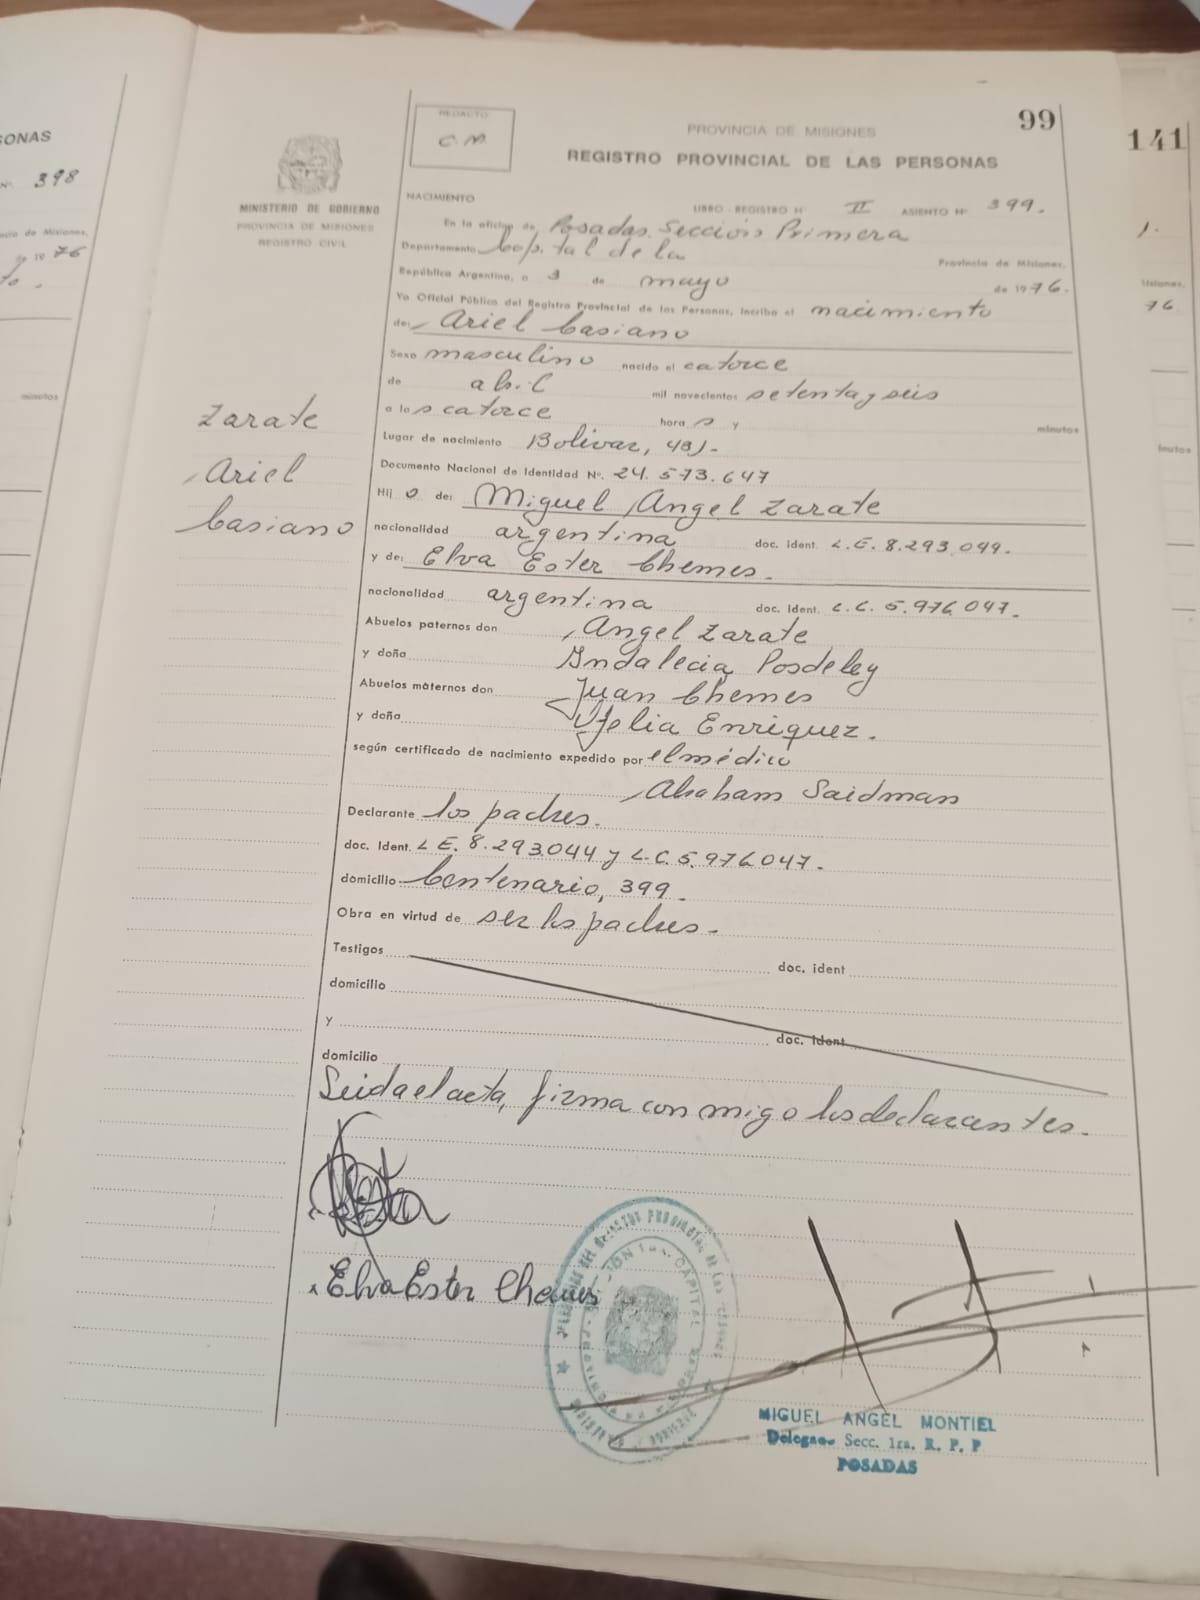 SONAS
Nº. 398
ncia de Misiones,
de 19 76
minutos
MINISTERIO DE GOBIERNO
PROVINCIA DE MISIONES
REGISTRO CIVIL
Zarate
Ariel
Casiano
REDACTO
C.M.
PROVINCIA DE MISIONES
99
REGISTRO PROVINCIAL DE LAS PERSONAS
NACIMIENTO
LIBRO - REGISTRO Nº II ASIENTO Nº 399.
En la oficina de Posadas Sección Primera
Departamento Capital de la Provincia de Misiones,
República Argentina, a 3 de mayo de 1976.
Yo Oficial Público del Registro Provincial de las Personas, inscribo el nacimiento
de: Ariel Casiano
Sexo masculino nacido el catorce
de abril mil novecientos setenta y seis
a las catorce horas y minutos
Lugar de nacimiento Bolivar,
Documento Nacional de Identidad Nº. 24.573.647
Hijo de: Miguel Angel Zarate
nacionalidad argentina doc. ident. L.E. 8.293.044.
y de: Elva Ester Chemes.
nacionalidad argentina doc. Ident. L.C. 5.976.047.
Abuelos paternos don Angel Zarate
y doña Indalecia Posdeley
Abuelos maternos don Juan Chemes
y doña Ofelia Enriquez.
según certificado de nacimiento expedido por el médico
Abraham Saidman
Declarante los padres.
doc. Ident. L.E. 8.293.044 y L.C. 5.976.047.
domicilio Centenario, 399.
Obra en virtud de ser los padres.
Testigos doc. ident
domicilio
y doc. Ident
domicilio
Leida el acta, firma conmigo los declarantes.
Elva Ester Chemes
MIGUEL ANGEL MONTIEL
Delegado Secc. 1ra. R. P. P
POSADAS
141
76
minutos